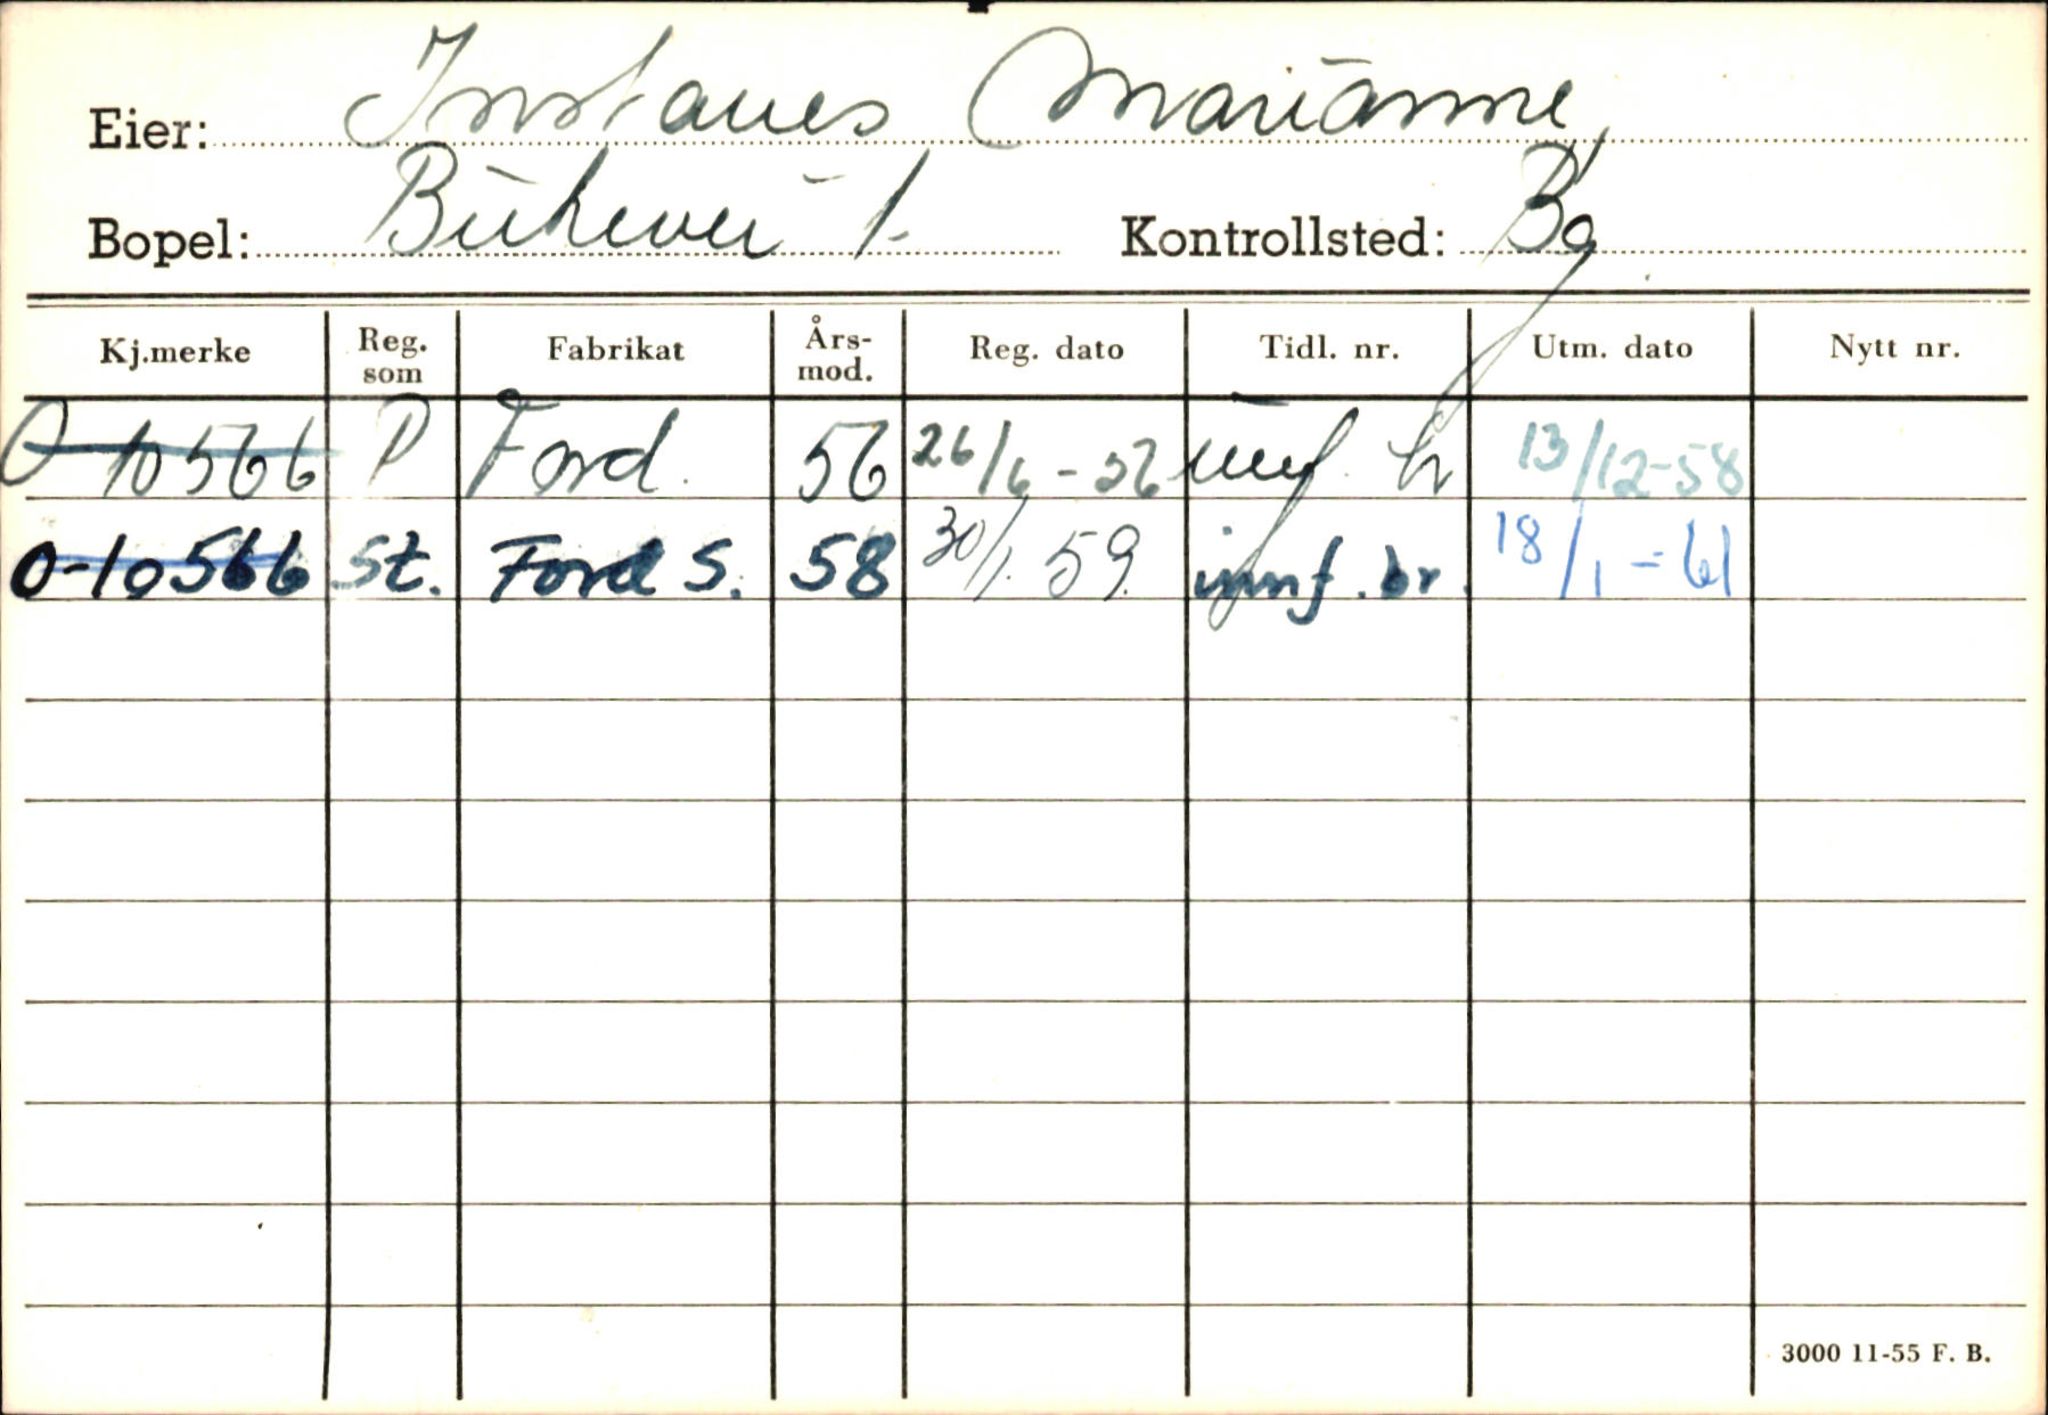 Eier: Instanes Marianne,
Bopel: Birkevei 1. Kontrollsted: Bg
Kj.merke Reg. som Fabrikat Års-mod. Reg. dato Tidl. nr. Utm. dato Nytt nr.
O-10566 P Ford. 56 26/6-56 innf. br 13/12-58
O-10566 St. Ford S. 58 30/1. 59. innf. br. 18/1-61
3000 11-55 F. B.